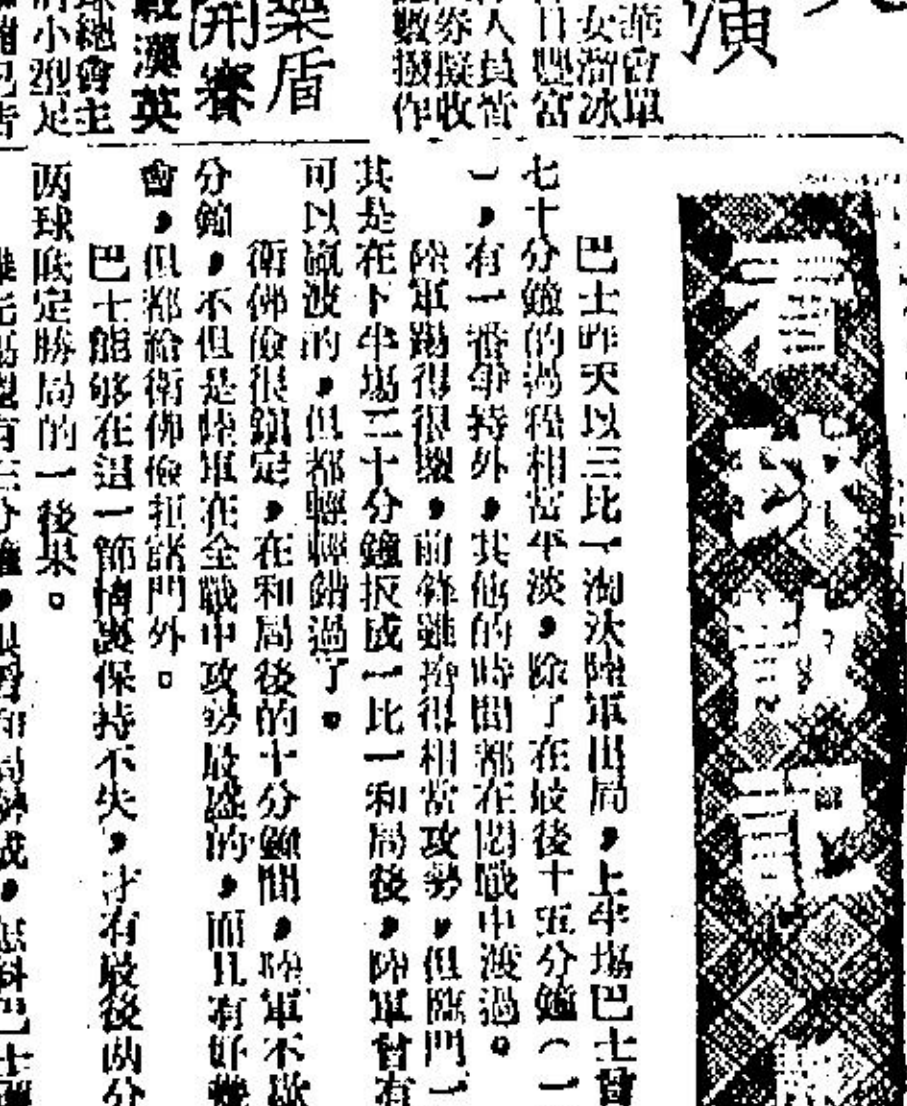 演
華會單
女溜冰
日豐富
人員皆
券擬收
數撥作
藥盾
開賽
戰漢英
球總會主
小型足
看球散記
巴士昨天以三比一淘汰陸軍出局，上半場巴士曾
七十分鐘的過程相當平淡，除了在最後十五分鐘（一
一，有一番爭持外，其他的時間都在悶戰中渡過。
陸軍踢得很壞，前鋒雖搶得相當攻勢，但臨門一
其是在下半場二十分鐘扳成一比一和局後，陸軍曾有
可以贏波的，但都輕輕錯過了。
衛佛儉很鎮定，在和局後的十分鐘間，陸軍不歇
分鐘，不但是陸軍在全戰中攻勢最盛的，而且有好幾
會，但都給衛佛儉拒諸門外。
巴士能够在這一節情勢保持不失，才有最後兩分
两球底定勝局的一後果。